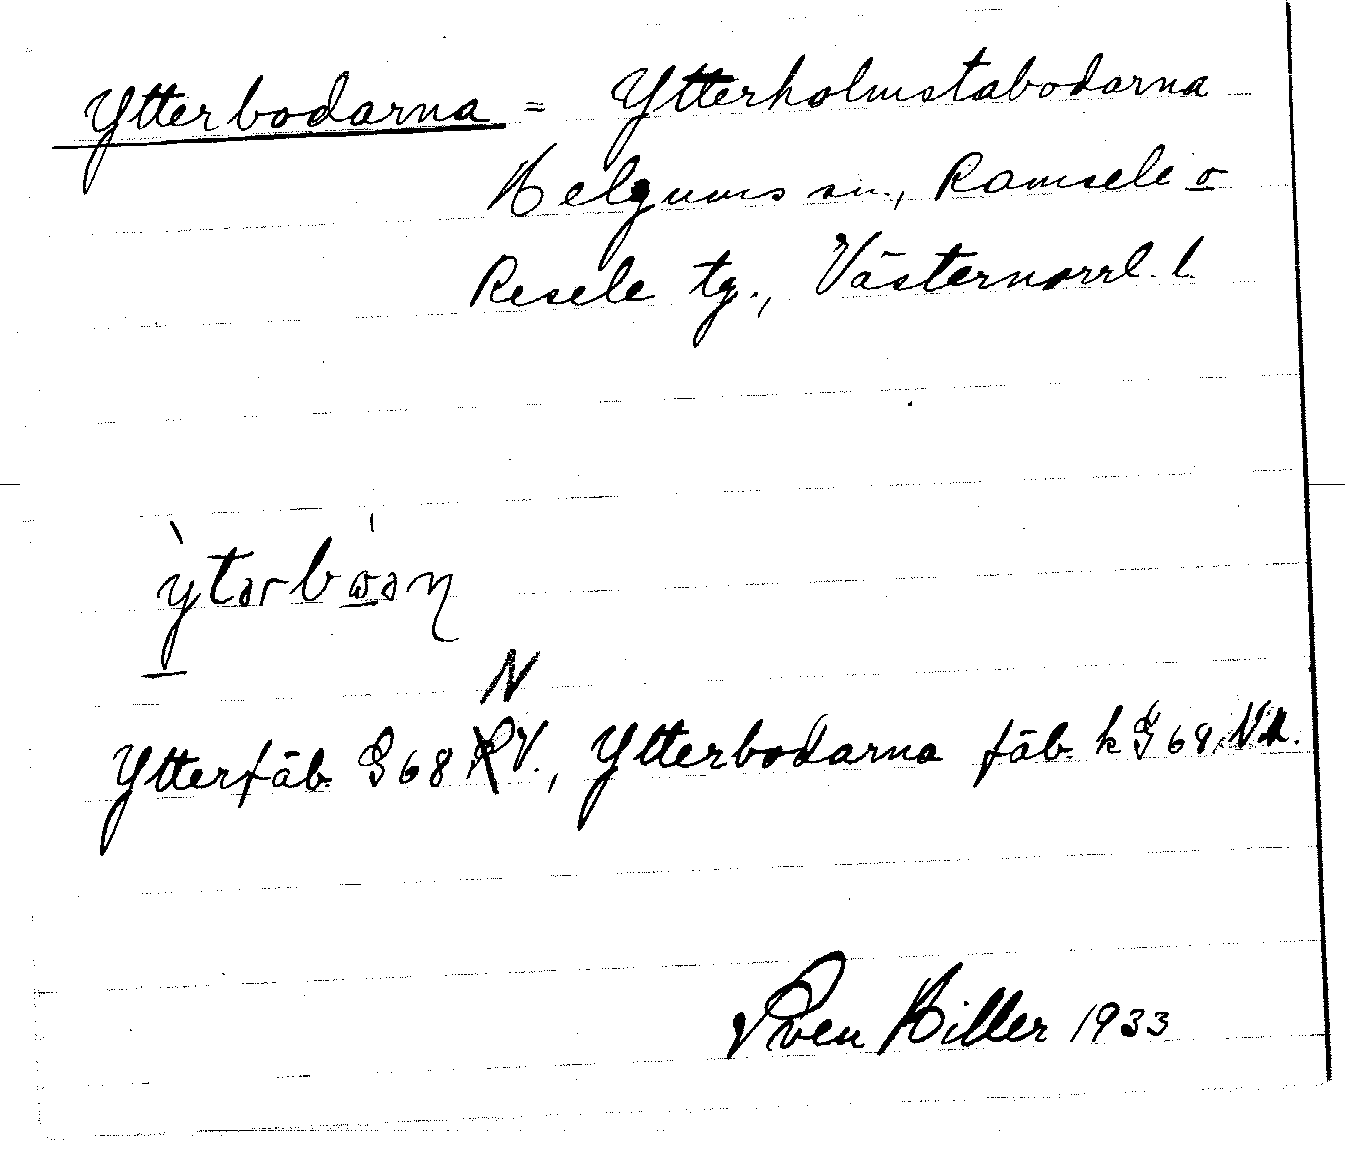 Ytterbodarna = Ytterholmstabodarna
Helgums sn., Ramsele o
Resele tg., Västernorrl. l.
ỳtərbώ̲əɳ
N
Ytterfäb. G68 RV., Ytterbodarna fäb. k G68 N.k.
Sven Hiller 1933